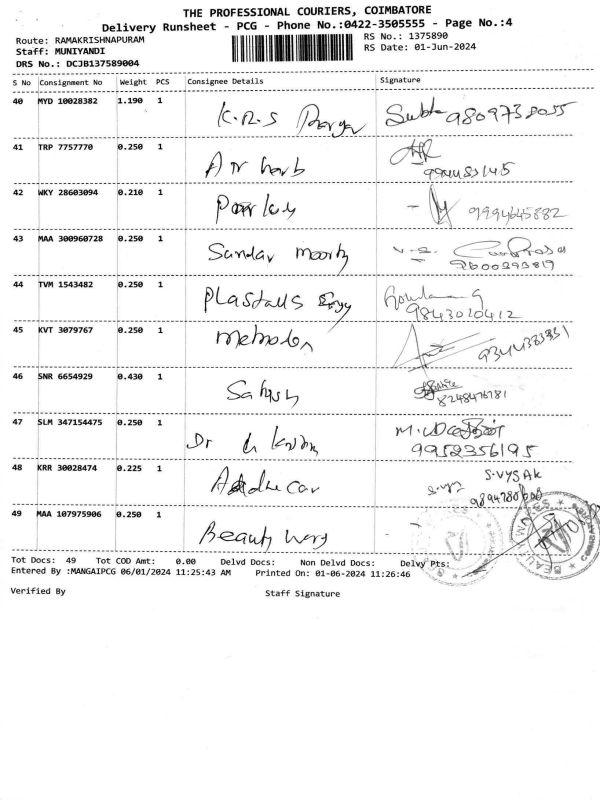 THE PROFESSIONAL COURIERS, COIMBATORE
Delivery Runsheet - PCG - Phone No.:0422-3505555 - Page No.:4
Route: RAMAKRISHNAPURAM RS No.: 1375890
Staff: MUNIYANDI RS Date: 01-Jun-2024
DRS No.: DCJB137589004
S No Consignment No Weight PCS Consignee Details Signature
40 MYD 10028382 1.190 1 K.R.S
41 TRP 7757770 0.250 1
42 WKY 28603094 0.210 1 9994645882
43 MAA 300960728 0.250 1 Sundar Moorty 9600393819
44 TVM 1543482 0.250 1 Plastalls 9843020412
45 KVT 3079767 0.250 1
46 SNR 6654929 0.430 1 Satysh
47 SLM 347154475 0.250 1 Dr 9952356195
48 KRR 30028474 0.225 1 S.VYSAK
49 MAA 107975906 0.250 1 Beauty
Tot Docs: 49 Tot COD Amt: 0.00 Delvd Docs: Non Delvd Docs: Delvy Pts:
Entered By :MANGAIPCG 06/01/2024 11:25:43 AM Printed On: 01-06-2024 11:26:46
Verified By Staff Signature